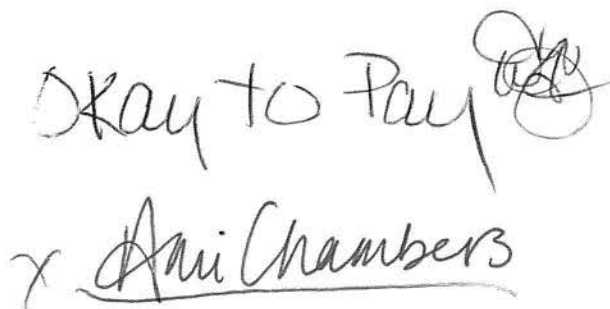 Okay to Pay
x Ami Chambers